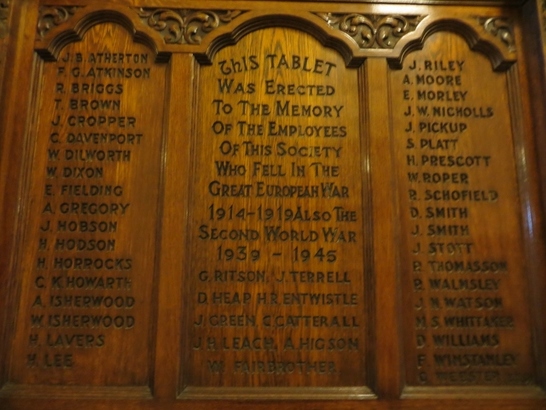 J. B. ATHERTON
F. G. ATKINSON
R. BRIGGS
T. BROWN
J. CROPPER
C. DAVENPORT
W. DILWORTH
W. DIXON
E. FIELDING
A. GREGORY
J. HOBSON
H. HODSON
H. HORROCKS
C. K. HOWARTH
A. ISHERWOOD
W. ISHERWOOD
H. LAVERS
H. LEE
THIS TABLET
WAS ERECTED
TO THE MEMORY
OF THE EMPLOYEES
OF THIS SOCIETY
WHO FELL IN THE
GREAT EUROPEAN WAR
1914-1919 ALSO THE
SECOND WORLD WAR
1939 - 1945
G. RITSON, J. TERRELL
D. HEAP, H.R. ENTWISTLE
J. GREEN, C. CATTERALL
J. H. LEACH, A. HIGSON
FAIRBROTHER
J. RILEY
A. MOORE
E. MORLEY
J. W. NICHOLLS
J. PICKUP
S. PLATT
H. PRESCOTT
W. ROPER
R. SCHOFIELD
D. SMITH
J. SMITH
J. STOTT
THOMASSON
WALMSLEY
WATSON
M. S. WHITTAKER
D. WILLIAMS
WINSTANLEY
WEBSTER